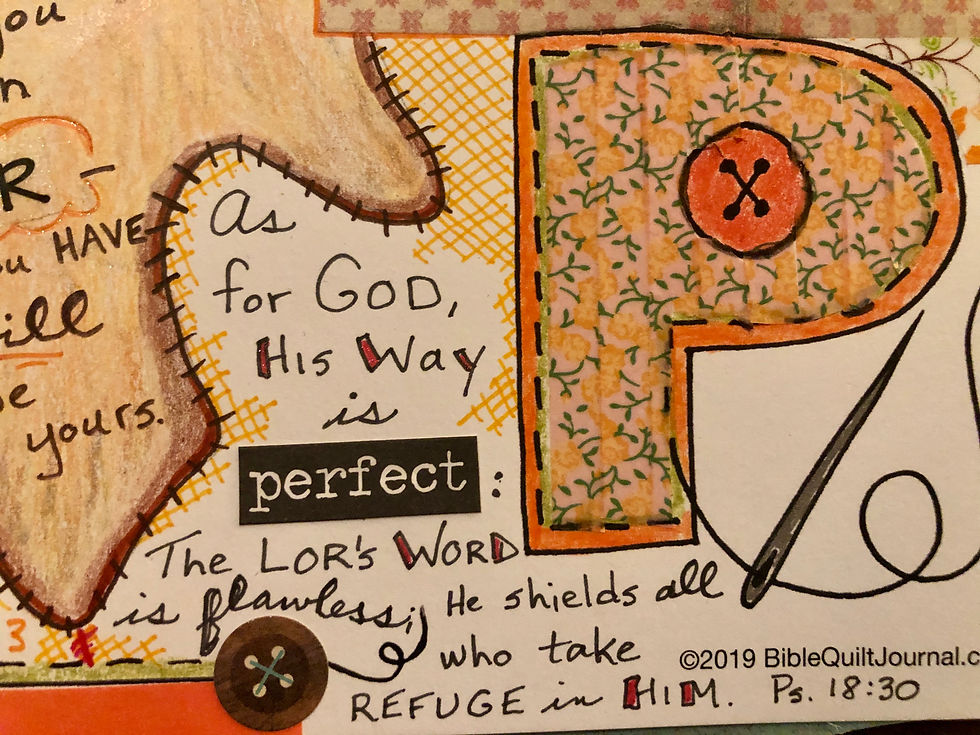 you
n
R -
ou HAVE
ill
e
yours.
3
As
for GOD,
His Way
is
perfect:
The LOR's WORD
is flawless; He shields all
who take
REFUGE in HiM. Ps. 18:30
P
©2019 BibleQuiltJournal.c